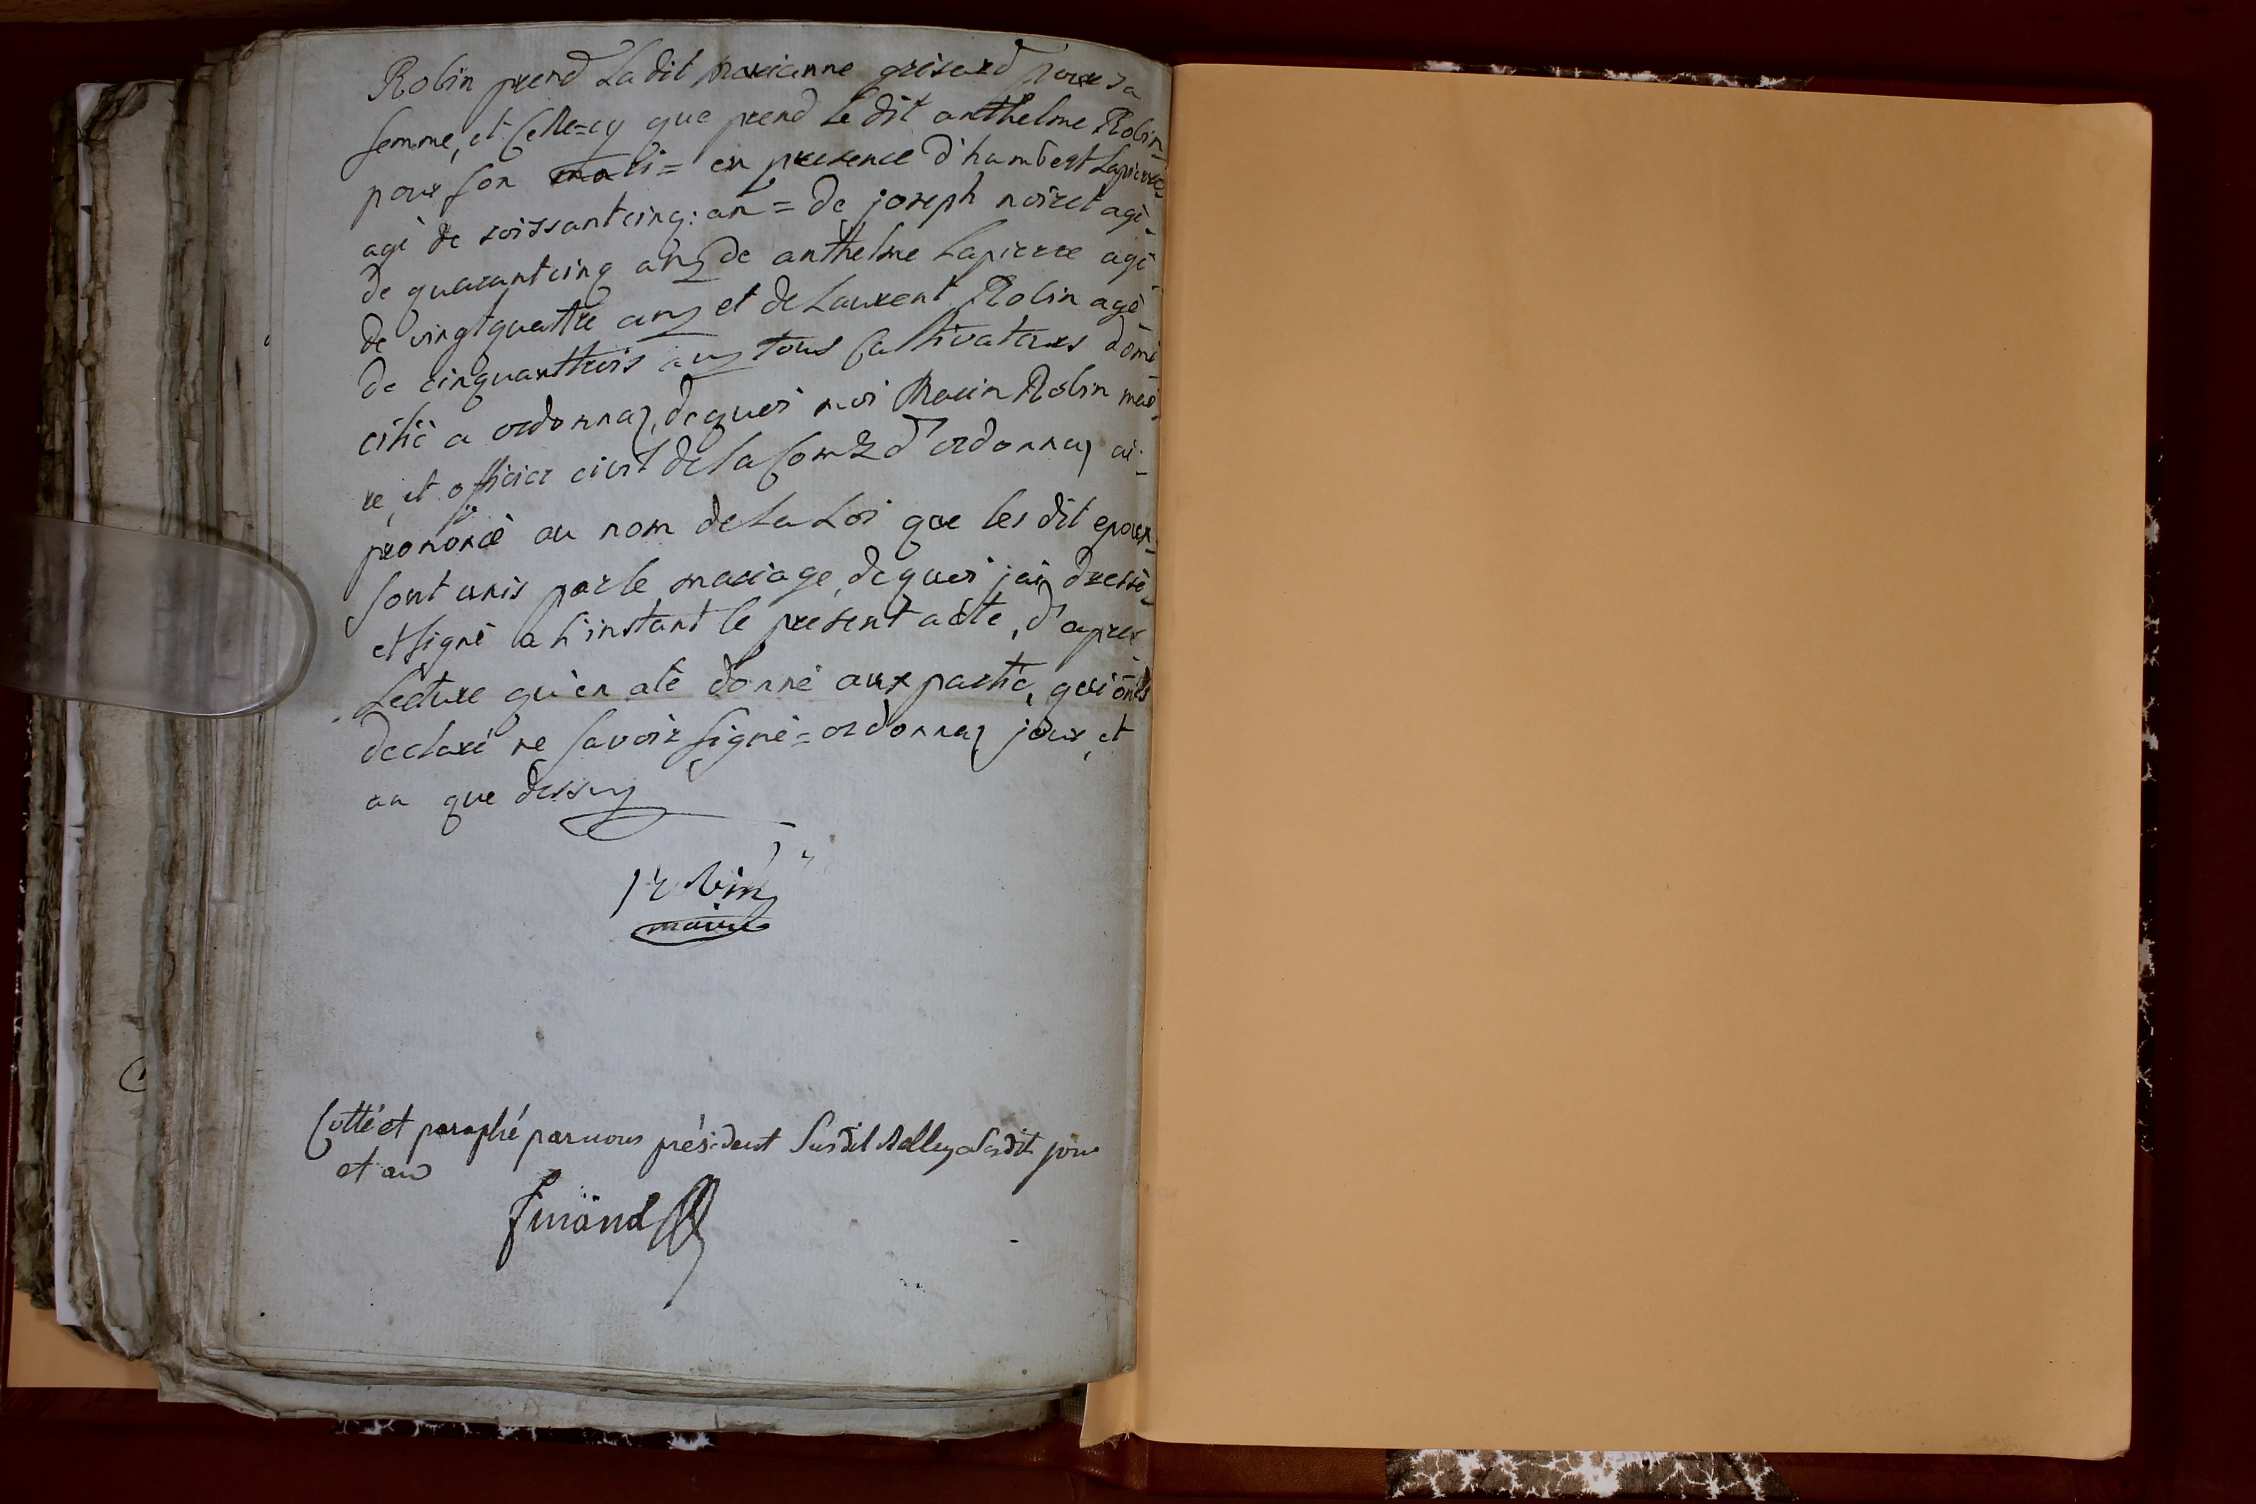 Robin prend La dit Marianne grisard pour sa
femme, et Celle=cy que prend Le dit anthelme Robin_
pour son mari= en presence d'humbert Lapierre
agé de soissantcinq: an= de joseph noiret agé_
de quarantcinq ans de anthelme Lapierre agé_
de vingtquattre ans et de Laurent Robin agé_
de cinquanttrois ans tous Cultivateurs domi_
cilié a ordonnaz, dequoi moi Marin Robin mai_
re, et officier civil de la Com.e d'ordonnaz ai_
prononcé au nom de La Loi que les dit epoux_
sont unis par le mariage, dequoi jai dressé_
et signé a L'instant le present acte, d'apres_
Lecture qu'en a été donné aux partie, qui onts
declaré ne savoir signé= ordonnaz jour, et
an que dessus
Robin
maire
Cotté et paraphé par nous président Susdit Belley Ledit jour
et an